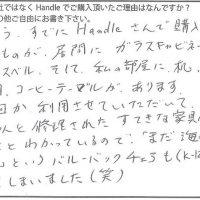 社ではなく Handle でご購入頂いたご理由はなんですか？
の他ご自由にお書き下さい。
う、すでに Handle さんで購入
ものが、居間に ガラスキャビネ
スベル、そして、私の部屋に、机、
用、コーヒーテーブルが、あります。
回か 利用させていただいて、
んと 修理された すてきな家具
とわかっているので、「まだ 海
という）バルーバックチェアも
しまいました（笑）